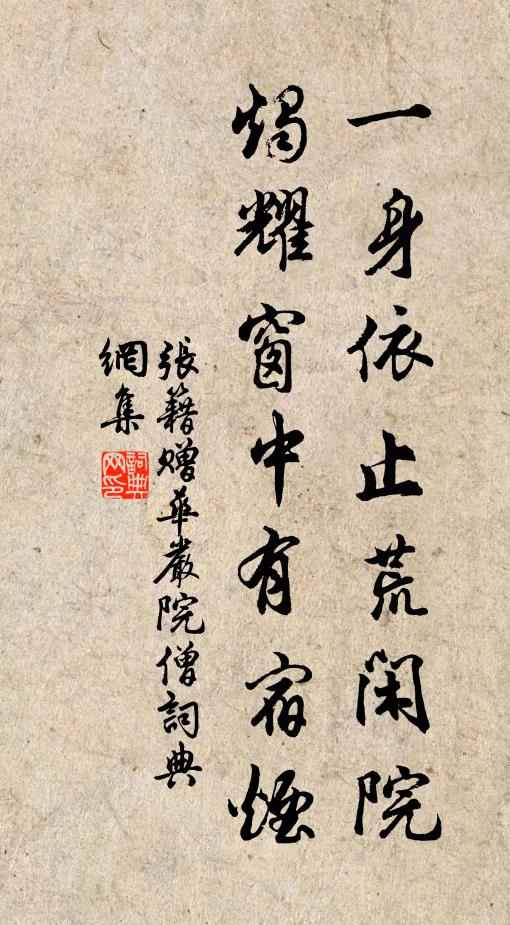 一身依止荒閑院
燭耀窗中有宿煙
張籍贈華嚴院僧詞典
網集
詞典
网印